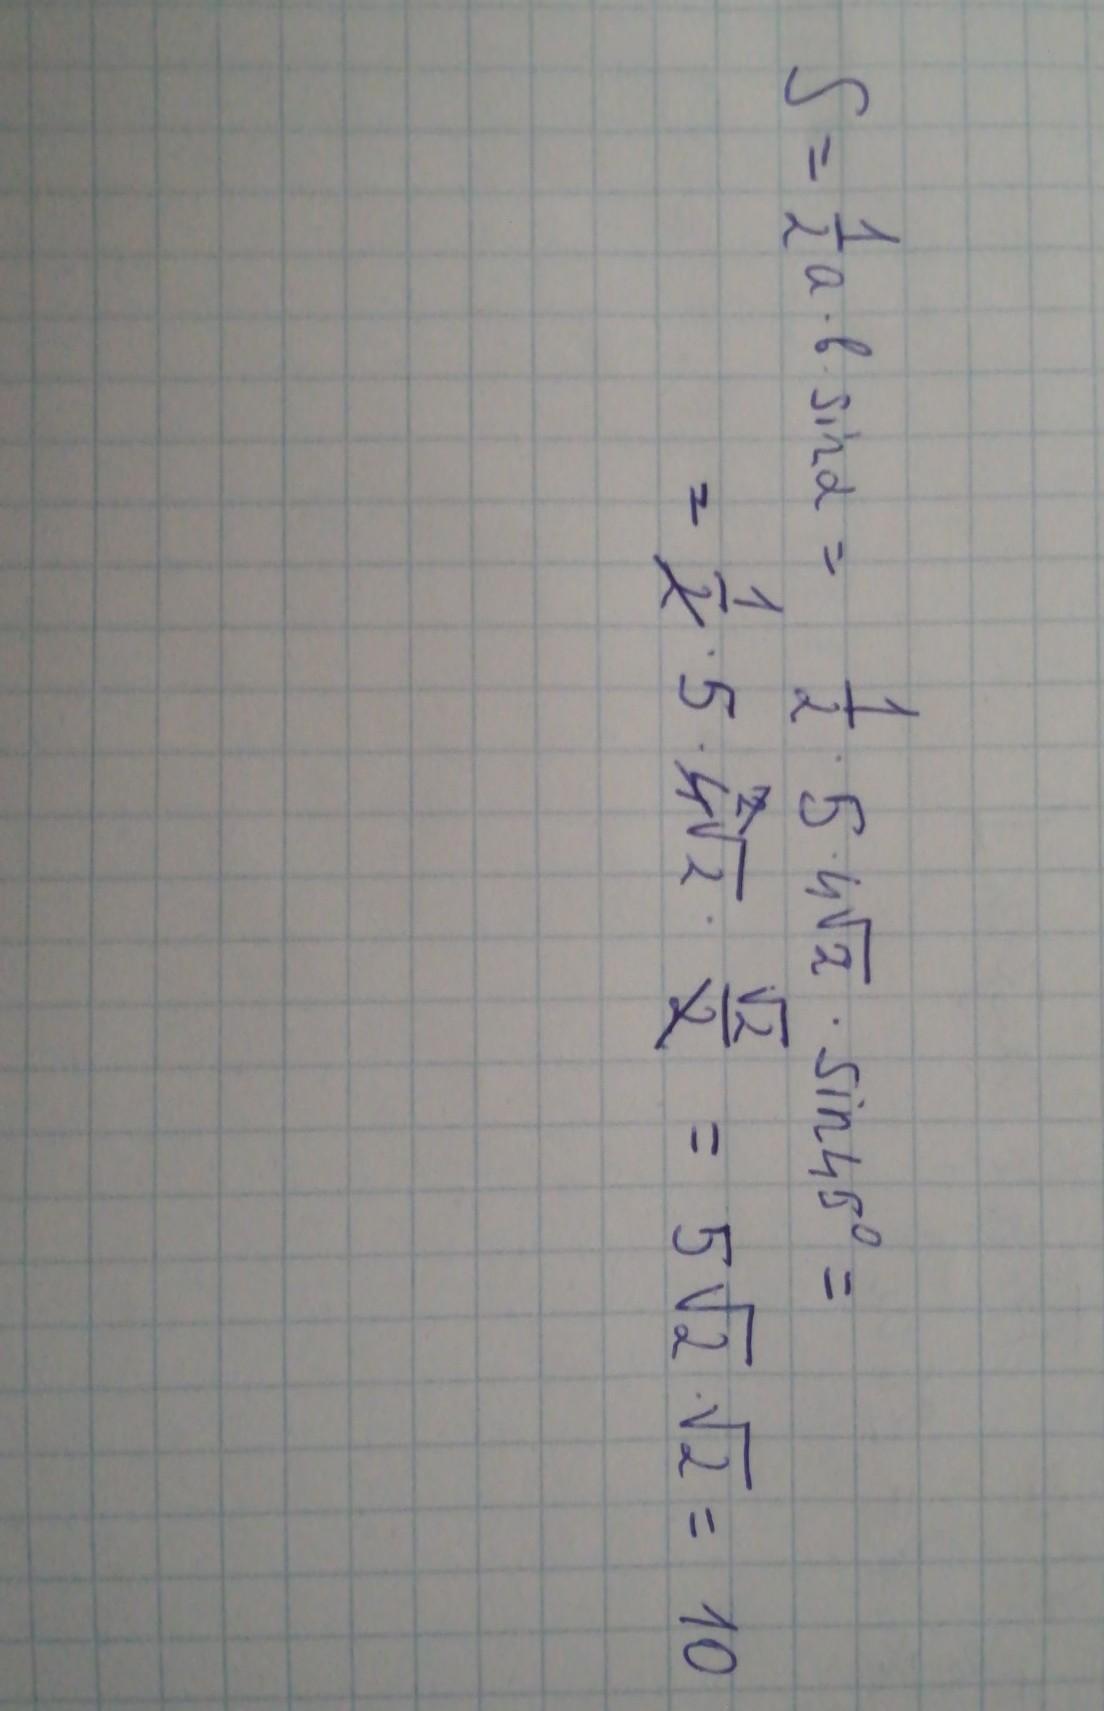 S = 1/2 a · b · sin α = 1/2 · 5 · 4√2 · sin 45° =
= 1/2 · 5 · 4√2 · √2/2 = 5√2 · √2 = 10